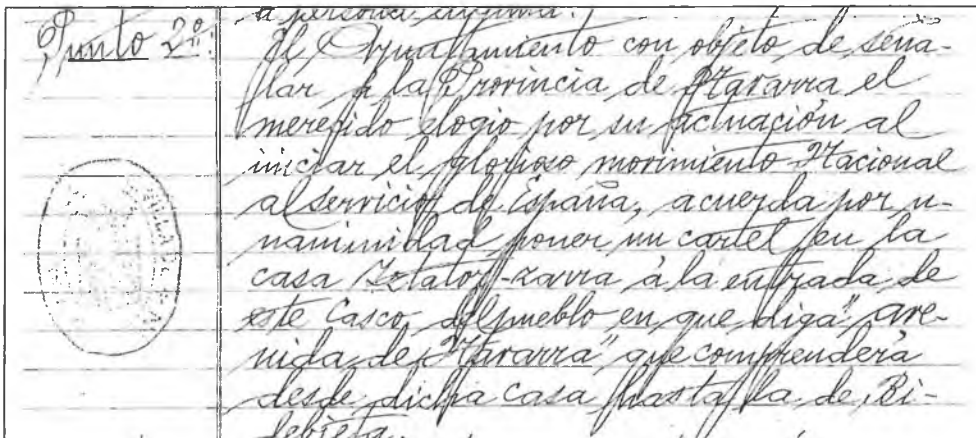 á persona
Punto 2º:
El Ayuntamiento con objeto de seña-
lar á la Provincia de Navarra el
merecido elogio por su actuación al
iniciar el glorioso movimiento Nacional
al servicio de España, acuerda por u-
naminidad poner un cartel en la
casa -zarra á la entrada de
este Casco del pueblo en que diga "ave-
nida de Navarra" que comprenderá
desde dicha casa hasta la de Bi-